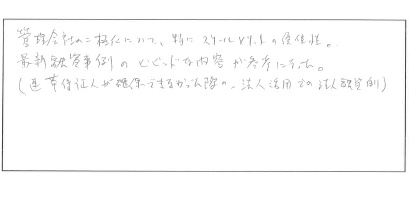 管理会社の二極化について、特にスケールメリットの優位性。
最新融資事例のビビッドな内容が参考になった。
(連帯保証人が確保できなかった際の、法人活用での法人融資例)